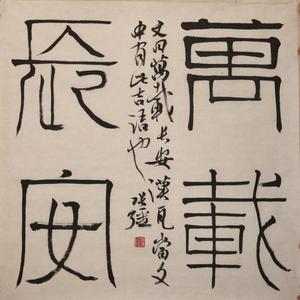 萬載
文曰萬載長安漢瓦當文
中有此吉語也
長安